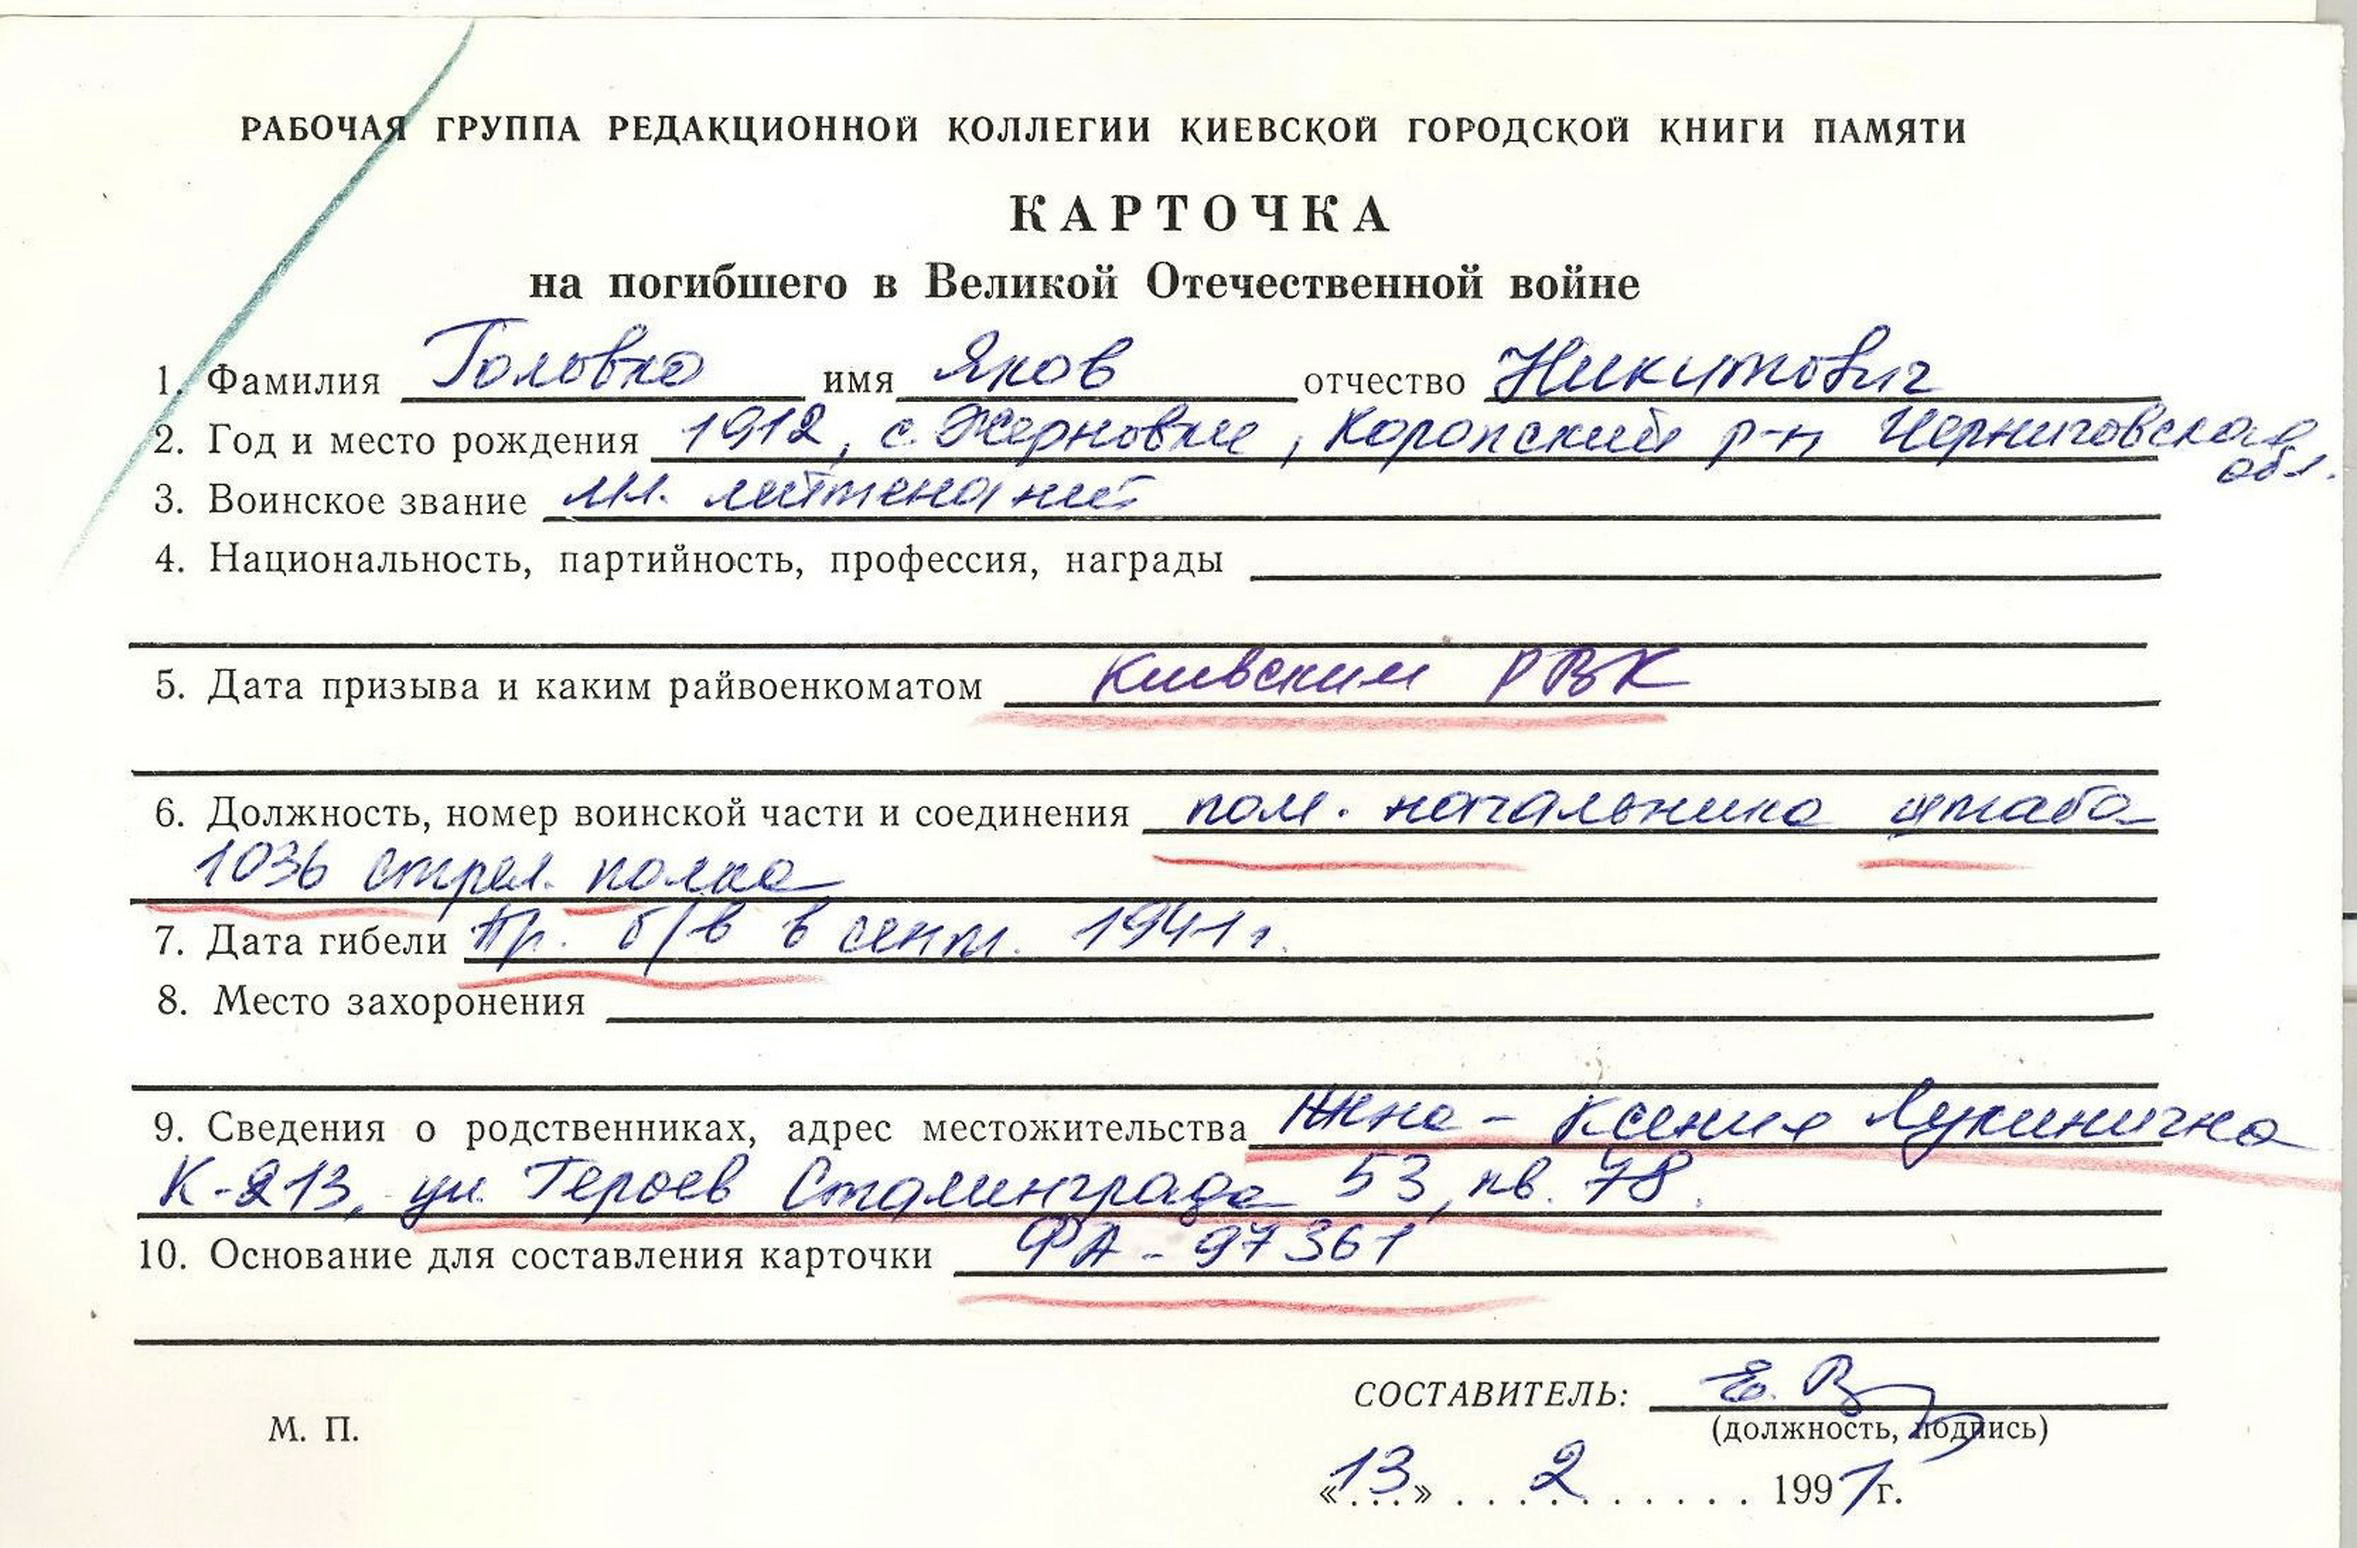 РАБОЧАЯ ГРУППА РЕДАКЦИОННОЙ КОЛЛЕГИИ КИЕВСКОЙ ГОРОДСКОЙ КНИГИ ПАМЯТИ
КАРТОЧКА
на погибшего в Великой Отечественной войне
1. Фамилия Головко имя Яков отчество Никитович
2. Год и место рождения 1912, с. Жерновки, Коропский р-н Черниговская
обл.
3. Воинское звание мл. лейтенант
4. Национальность, партийность, профессия, награды
5. Дата призыва и каким райвоенкоматом Киевским РВК
6. Должность, номер воинской части и соединения пом. начальника штаба
1036 стрел. полка
7. Дата гибели Пр. б/в в сент. 1941 г.
8. Место захоронения
9. Сведения о родственниках, адрес местожительства Жена - Ксения Лукинична
К-213, ул. Героев Сталинграда 53, кв. 78.
10. Основание для составления карточки ФА - 97361
СОСТАВИТЕЛЬ: Е. В
(должность, подпись)
М. П.
«13» 2 1991 г.